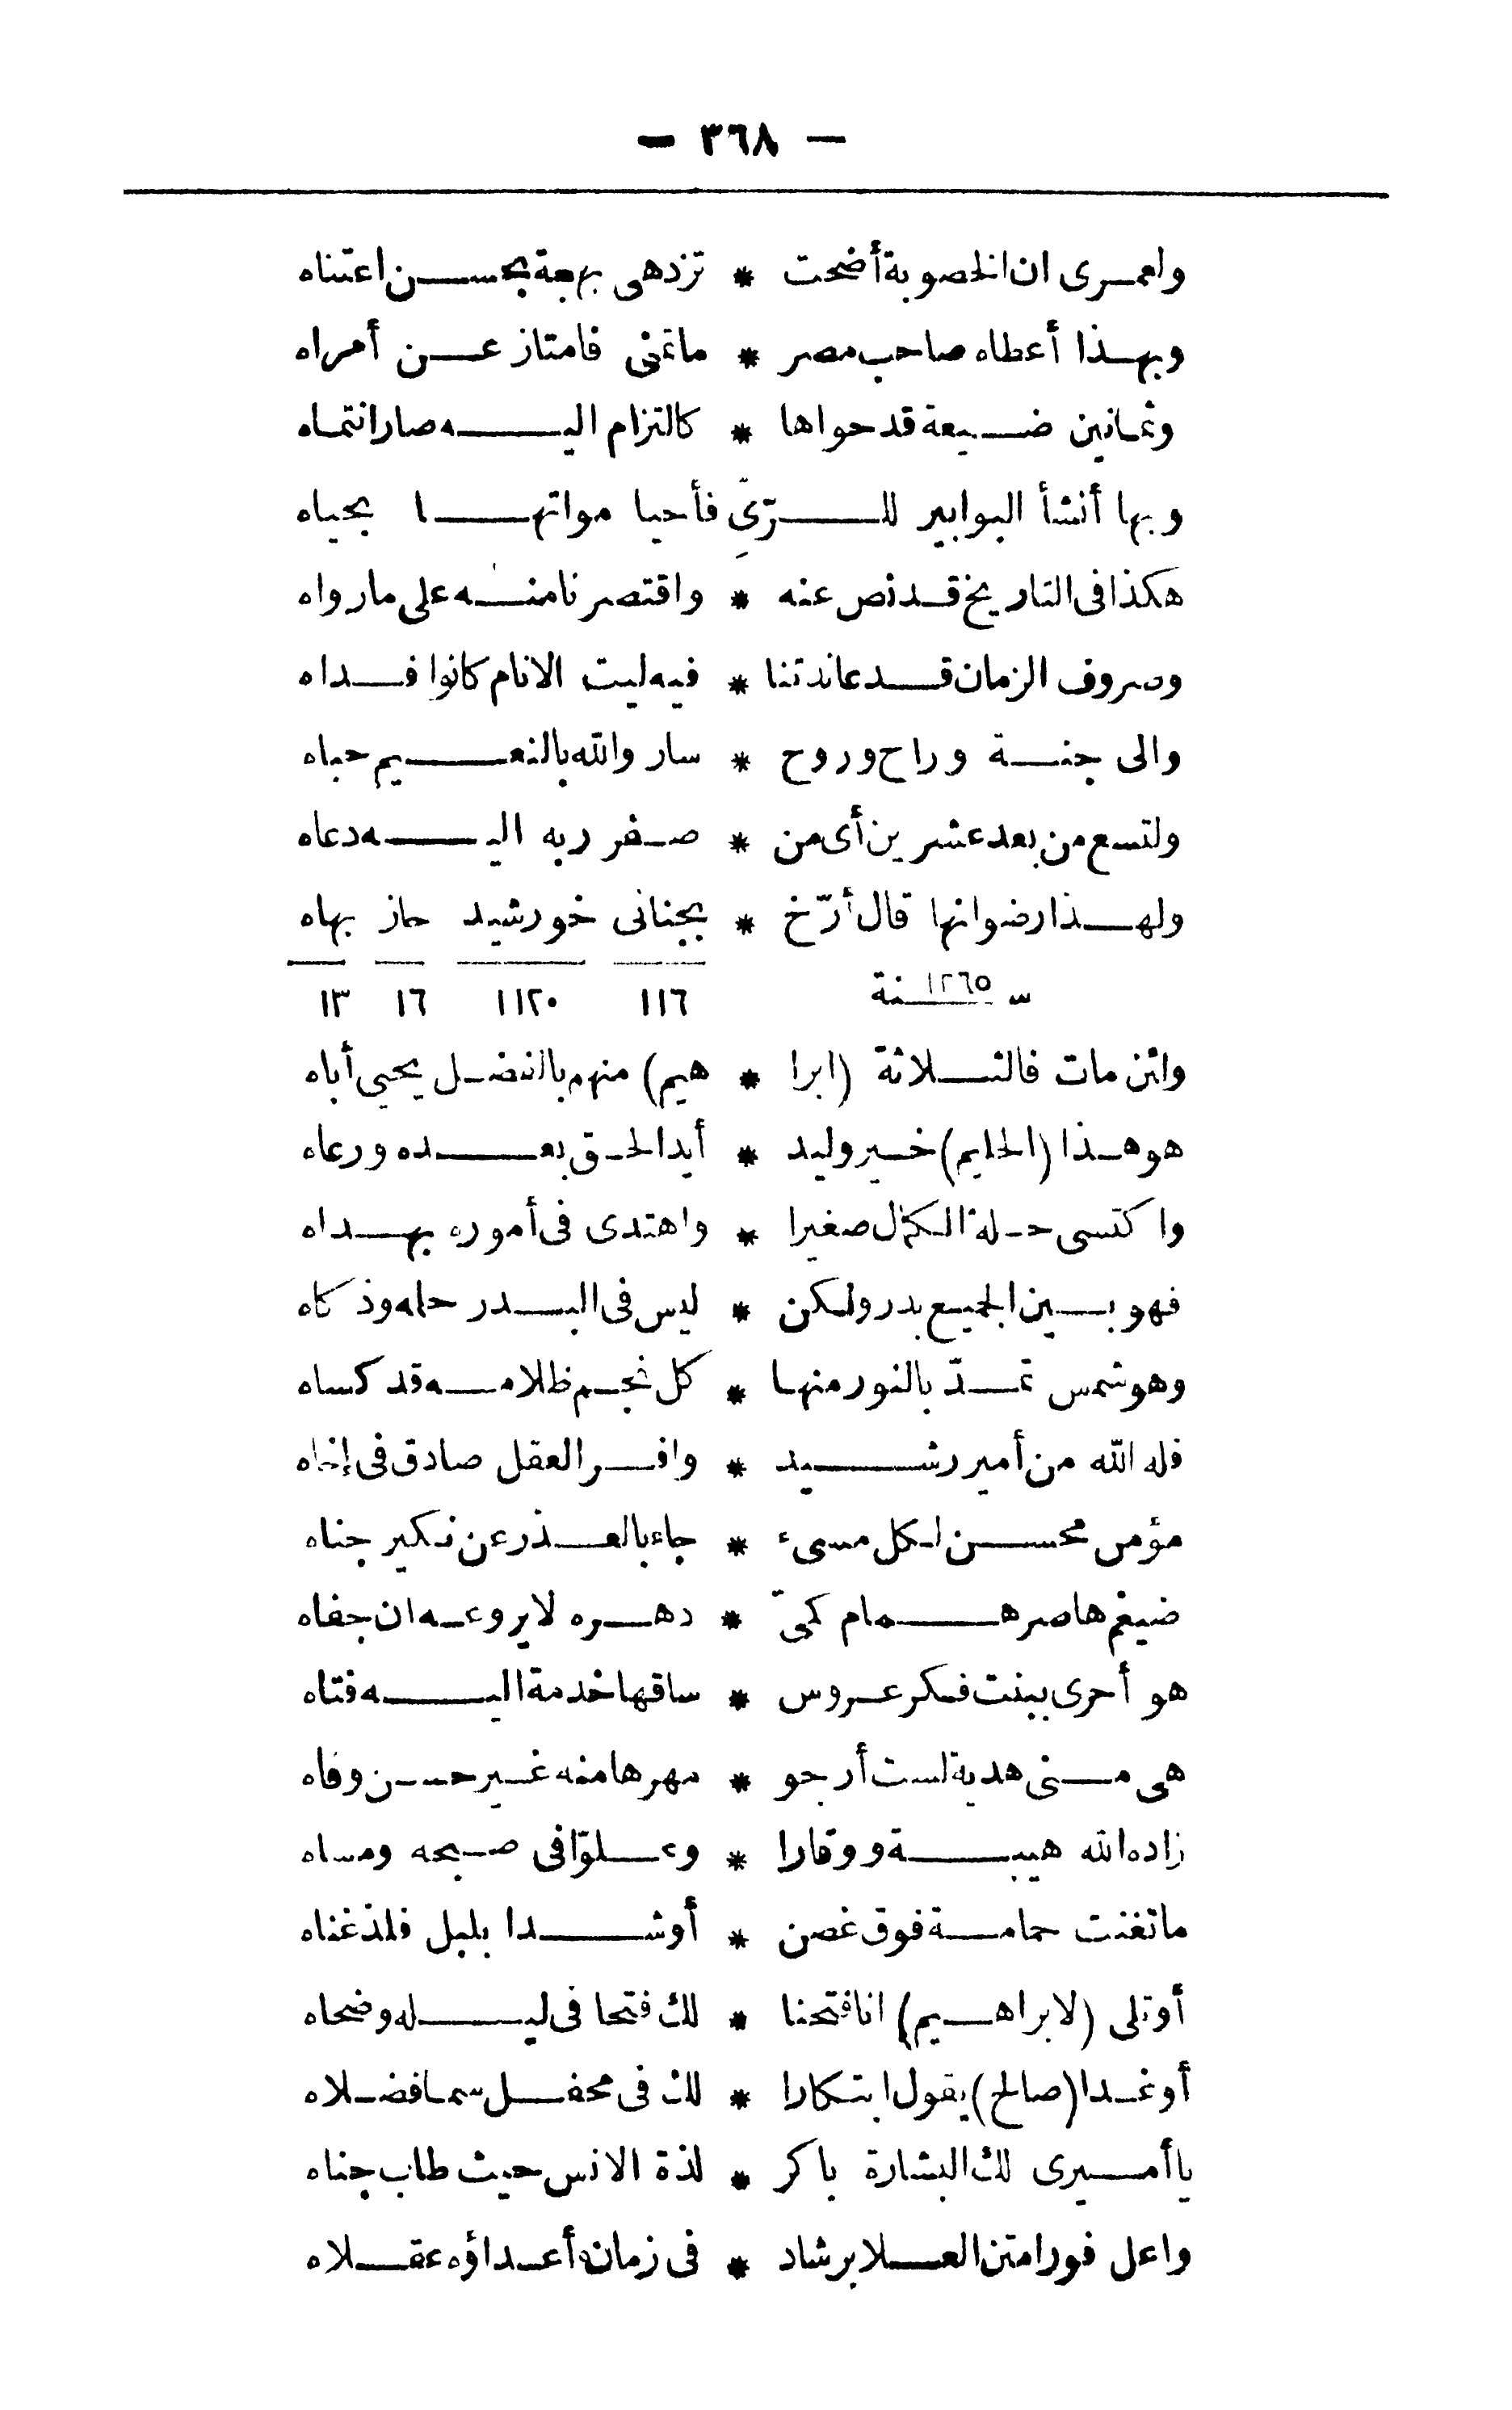 — ٣٦٨ —
ولعمرى ان الخصوبة أضحت * تزدهى بهجة بحسن اعتناه
وبهذا أعطاه صاحب مصر * ما تمنى فامتاز عن أمراه
وثمانين ضيعة قد حواها * كالتزام اليه صار انتماه
وبها أنشأ البوابير للرّىّ فأحيا مواتها بحياه
هكذا فى التاريخ قد نص عنه * واقتصرنا منه على مارواه
وصروف الزمان قد عاندتنا * فيه ليت الانام كانوا فداه
والى جنة وراح وروح * سار والله بالنعيم حباه
ولتسع من بعد عشرين أى من * صفر ربه اليه دعاه
ولهذا رضوانها قال أرّخ * بجنانى خورشيد حاز بهاه
سنة ١٢٦٥ ١١٦ ١١٢٠ ١٦ ١٣
وائن مات فالثلاثة (ابرا * هيم) منهم بالفضل يحيى أباه
هو هذا (الحليم) خير وليد * أيد الحق بعده ورعاه
واكتسى حلة الكمال صغيرا * واهتدى فى أموره بهداه
فهو بين الجميع بدر ولكن * ليس فى البدر حلمه وذكاه
وهو شمس تمدّ بالنور منها * كل نجم ظلامه قد كساه
فله الله من أمير رشيد * وافر العقل صادق فى إخاه
مؤمن محسن لكل مسىء * جاء بالعذر عن نكير جناه
ضيغم هاصر همام كمىّ * دهره لا يروعه ان جفاه
هو أحرى ببنت فكر عروس * ساقها خدمة اليه فتاه
هى منى هدية لست أرجو * مهرها منه غير حسن وفاه
زاده الله هيبة ووقارا * وعلوّا فى صبحه ومساه
ما تغنت حمامة فوق غصن * أو شدا بلبل فلذ غناه
أو تلى (لابراهيم) انا فتحنا * لك فتحا فى ليله وضحاه
أو غدا (صالح) يقول ابتكارا * لك فى محفل سما فضلاه
يا أميرى لك البشارة باكر * لذة الانس حيث طاب جناه
واعل فورا متن العلا برشاد * فى زمان أعداؤه عقلاه